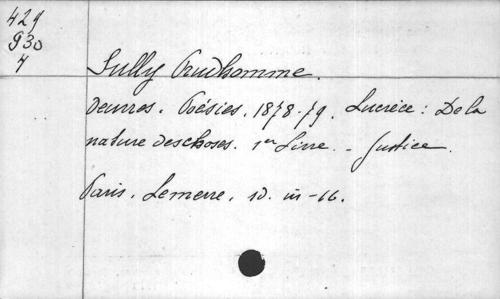 429
930
4
Sully Prudhomme.
Oeuvres. Poésies. 1878-79. Lucrèce: De la
nature des choses. 1er Livre. - Justice.
Paris. Lemerre. sd. in-16.